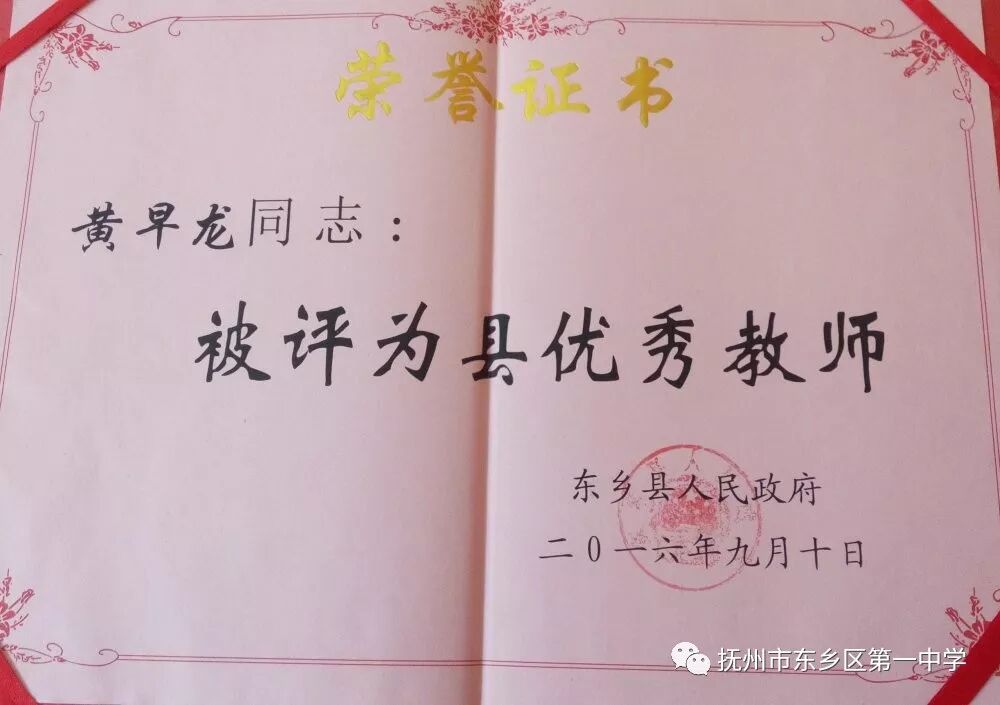 荣誉证书
黄早龙同志：
被评为县优秀教师
东乡县人民政府
二〇一六年九月十日
抚州市东乡区第一中学